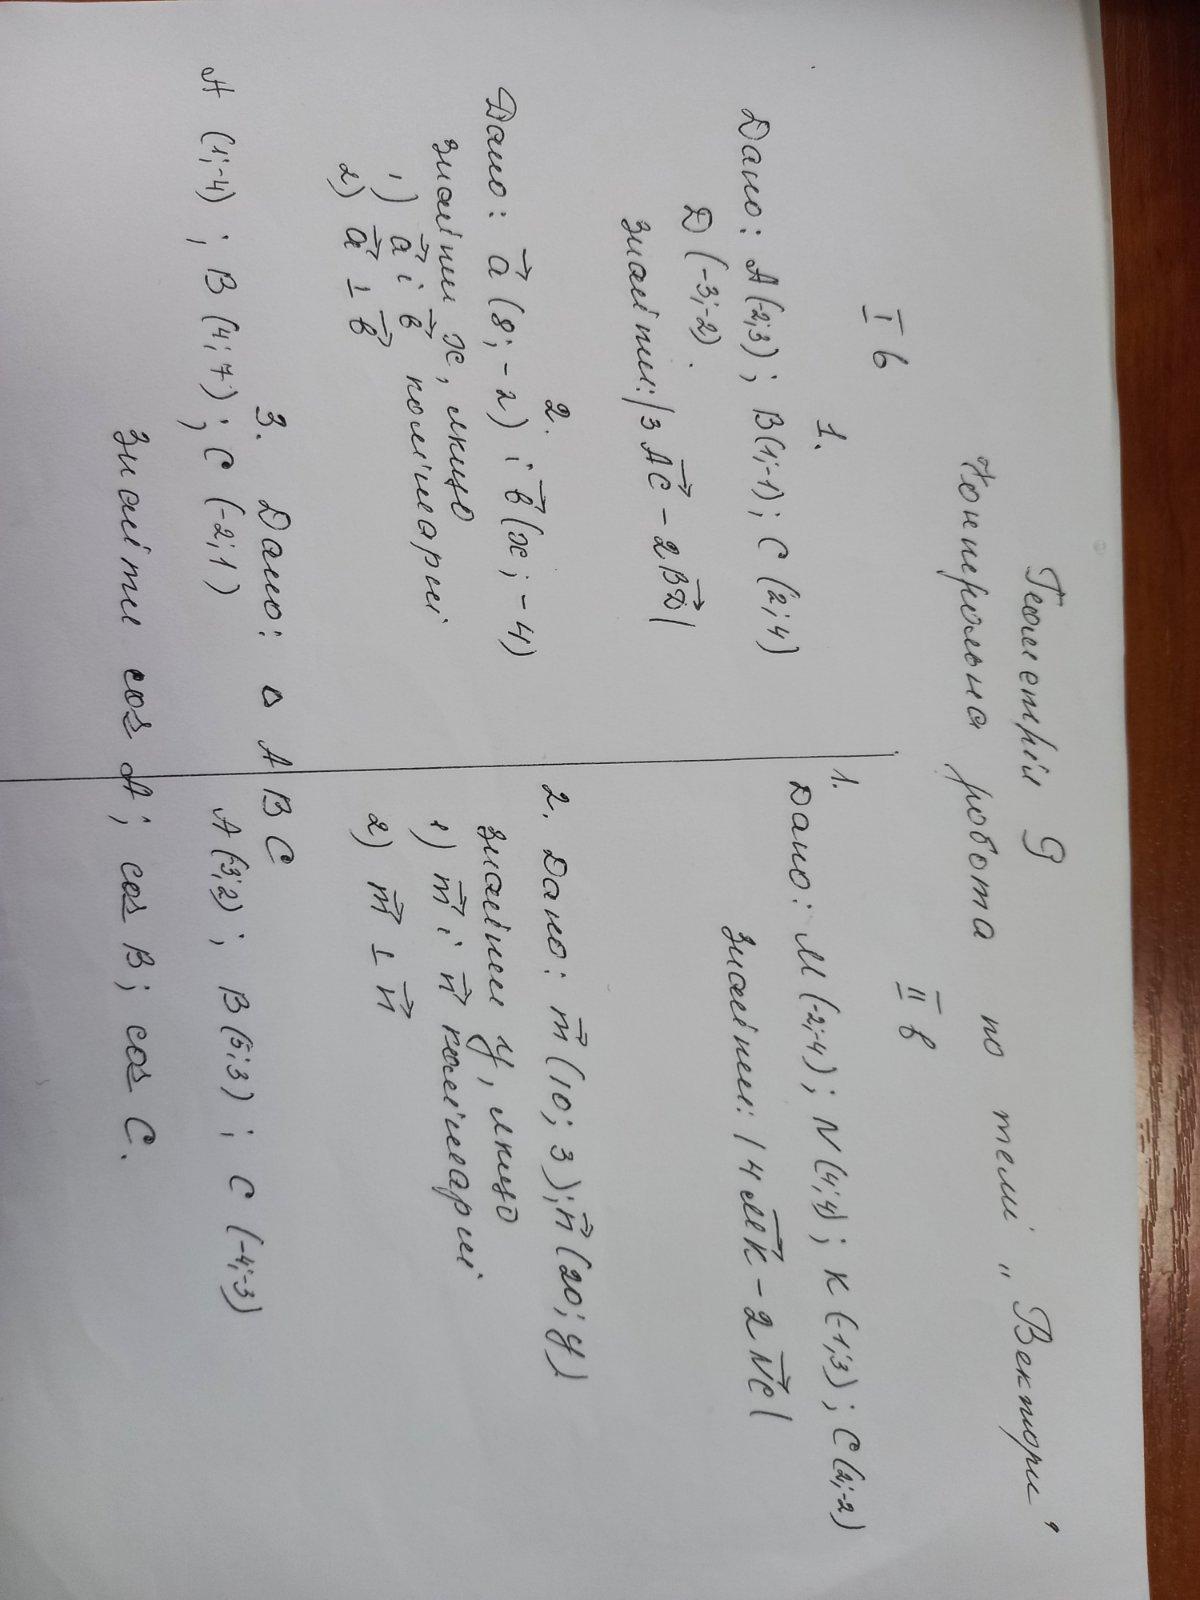 Геометрія 9
Контрольна робота по темі „Вектори"
I в
1.
Дано: A(-2;3); B(1;-1); C(2;4)
D(-3;-2).
Знайти: |3AC⃗ - 2BD⃗|
2.
Дано: a⃗(8;-2) і b⃗(x;-4)
Знайти x, якщо
1) a⃗ і b⃗ колінеарні
2) a⃗ ⊥ b⃗
II в
1.
Дано: M(-2;-4); N(4;4); K(-1;3); C(2;-2)
Знайти: |4MK⃗ - 2NC⃗|
2. Дано: m⃗(10;3); n⃗(20;y)
Знайти y, якщо
1) m⃗ і n⃗ колінеарні
2) m⃗ ⊥ n⃗
3. Дано: △ABC
A(1;-4); B(4;7); C(-2;1)
A(-3;2); B(5;3); C(-4;-3)
Знайти cos A; cos B; cos C.